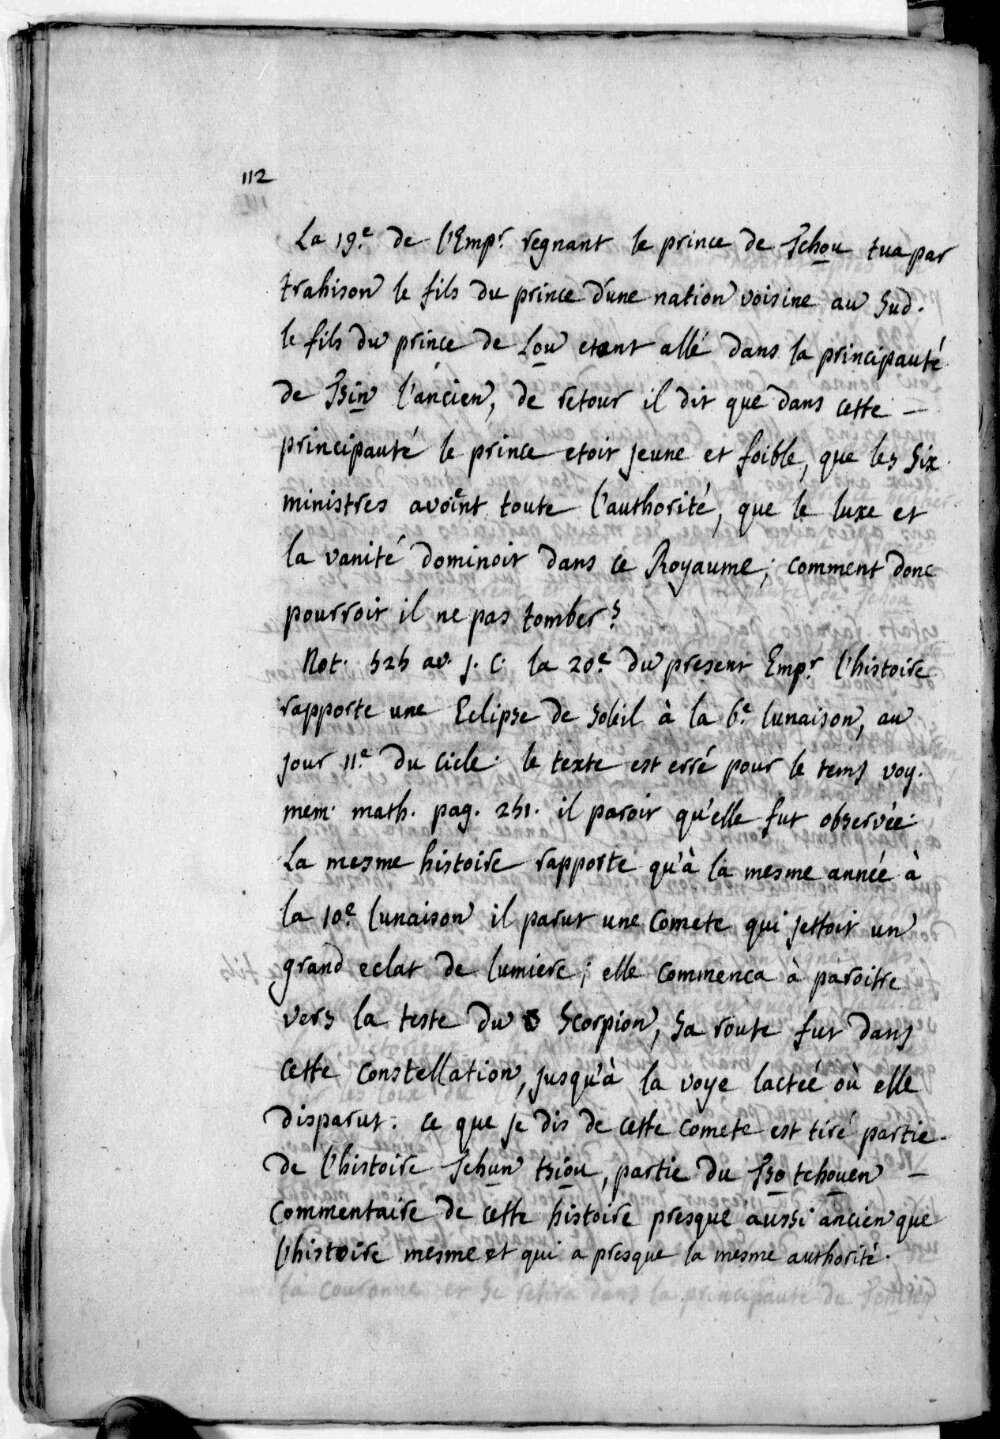 112
La 19.e de l'Emp.r regnant le prince de Tchou tua par
trahison le fils du prince d'une nation voisine au Sud.
le fils du prince de Lou etant allé dans la principauté
de Tsin l'ancien, de retour il dit que dans cette –
principauté le prince etoit jeune et foible, que les Six
ministres avoint toute l'authorité, que le luxe et
la vanité dominoit dans ce Royaume; comment donc
pourroit il ne pas tomber?
Not. 525 av. J. C. la 20.e du present Emp.r l'histoire
rapporte une Eclipse de Soleil à la 6.e lunaison, au
jour 11.e du Cicle. le texte est erré pour le tems voy.
mem. math. pag. 251. il paroit qu'elle fut observée.
La mesme histoire rapporte qu'à la mesme année à
la 10.e lunaison il parut une Comete qui jettoit un
grand eclat de lumiere; elle commenca à paroitre
vers la teste du Scorpion, Sa route fut dans
cette Constellation, jusqu'à la voye lactée où elle
disparut. ce que je dis de cette Comete est tiré partie
de l'histoire Tchun tsiou, partie du Tso tchouen –
Commentaire de cette histoire presque aussi ancien que
l'histoire mesme et qui a presque la mesme authorité.